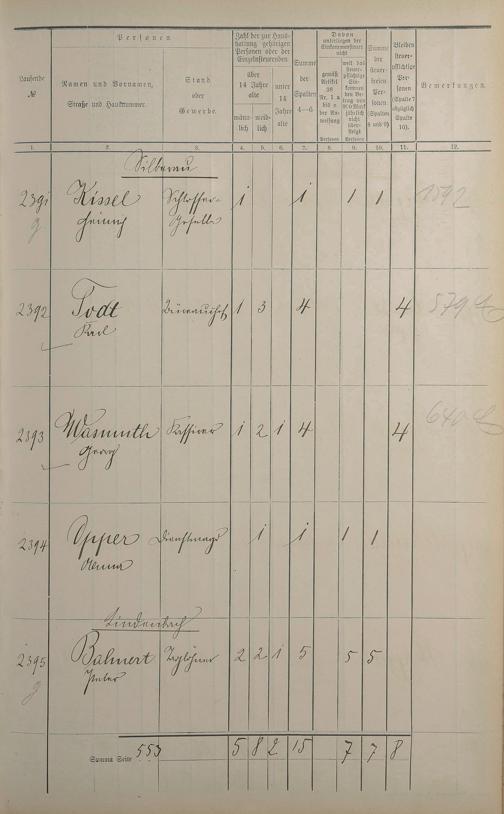 Laufende
№
Personen
Namen und Vornamen,
Straße und Hausnummer.
Stand
oder
Gewerbe.
Zahl der zur Haus-
haltung gehörigen
Personen oder der
Einzelnsteuernden
über
14 Jahre
alte
männ-
lich
weib-
lich
unter
14
Jahre
alte
Summe
der
Spalten
4—6
Davon
unterliegen der
Einkommensteuer
nicht
gemäß
Artikel
Nr. 1 a
bis e
der An-
weisung
Personen
weil das
steuer-
pflichtige
Ein-
kommen
den Be-
trag von
900 Mark
jährlich
nicht
über-
steigt
Personen
Summe
der
steuer-
freien
Per-
sonen
(Spalten
8 und 9)
Bleiben
steuer-
pflichtige
Per-
sonen
(Spalte 7
abzüglich
Spalte
10).
Bemerkungen.
1. 2. 3. 4. 5. 6. 7. 8. 9. 10. 11. 12.
Silberau
2391 Kissel Schlosser- 1 1 1 1 1592
Heinrich Geselle
2392 Todt 1 3 4 4 579
Karl
2393 Wasmuth Kassierer 1 2 1 4 4 640
Georg
2394 Opper Dienstmagd 1 1 1 1
Anna
Lindenbach
2395 Balmert Taglöhner 2 2 1 5 5 5
Peter
Summa Seite 553 5 8 2 15 7 7 8